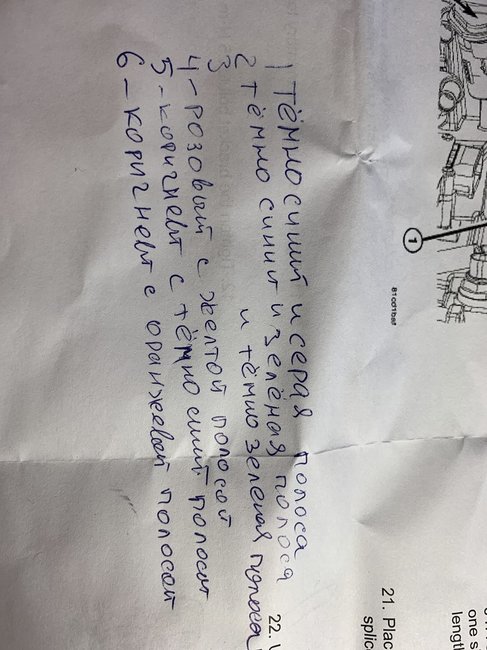 1 Тёмно синий и серая полоса
2 тёмно синий и зелёная полоса
3 и тёмно зеленая полоса
4 - розовый с желтой полосой
5 - коригневый с тёмно синий полосой
6 - коригневый с оранжевой полосой
1
81cd1baf
one s
length
21. Plac
splic
22.